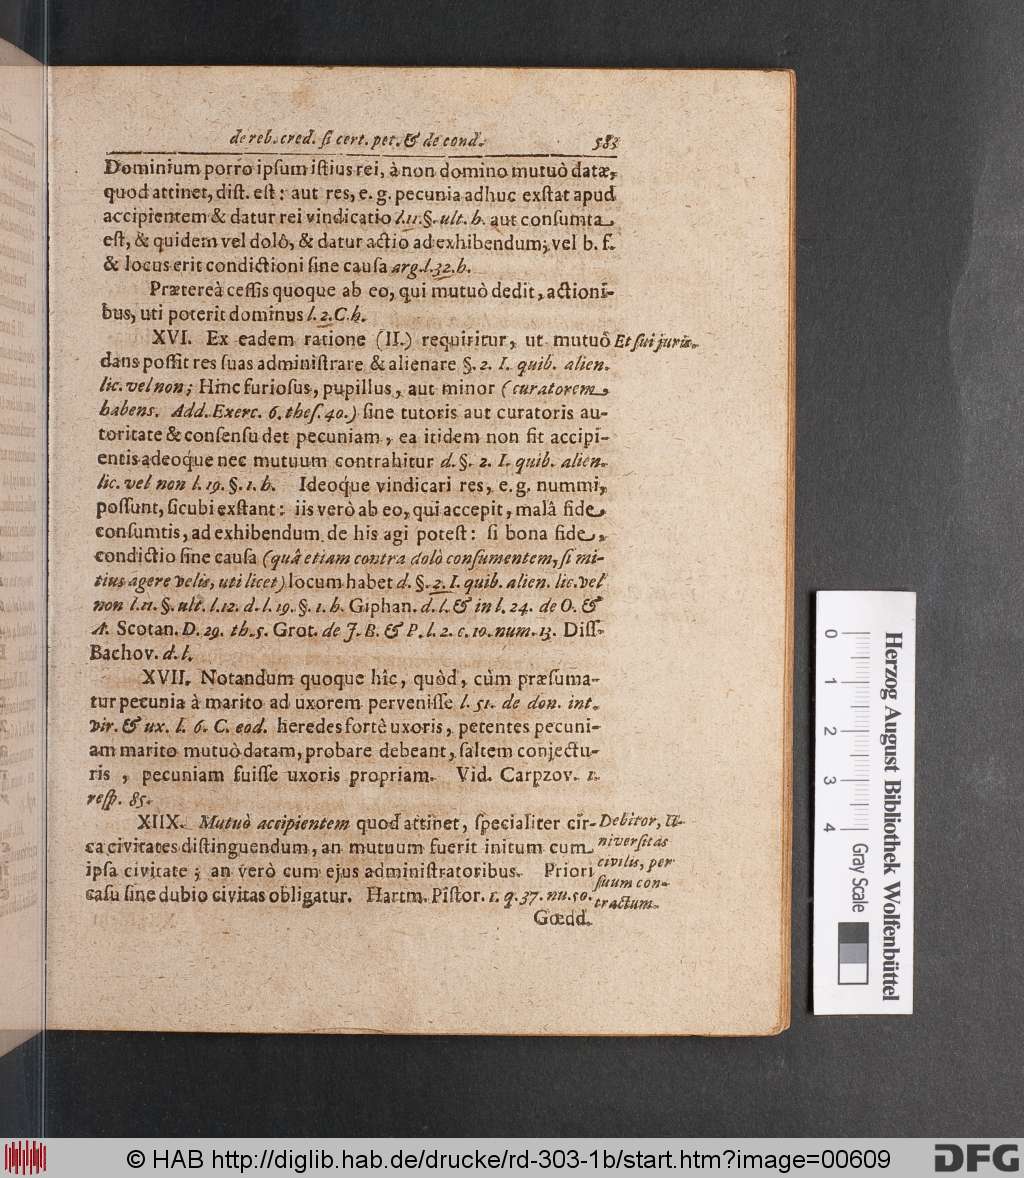 de reb. cred. si cert. pet. & de cond. 583
Dominium porro ipsum istius rei, à non domino mutuò datæ,
quod attinet, dist. est: aut res, e. g. pecunia adhuc exstat apud
accipientem & datur rei vindicatio l. 11. §. ult. h. aut consumta
est, & quidem vel dolô, & datur actio ad exhibendum; vel b. f.
& locus erit condictioni sine causa arg. l. 32. h.
Prætereà cessis quoque ab eo, qui mutuò dedit, actioni-
bus, uti poterit dominus l. 2. C. h.
XVI. Ex eadem ratione (II.) requiritur, ut mutuò
Et sui juris.
dans possit res suas administrare & alienare §. 2. I. quib. alien.
lic. vel non; Hinc furiosus, pupillus, aut minor (curatorem
habens. Add. Exerc. 6. thes. 40.) sine tutoris aut curatoris au-
toritate & consensu det pecuniam, ea itidem non fit accipi-
entis adeoq́ue nec mutuum contrahitur d. §. 2. I. quib. alien.
lic. vel non l. 19. §. 1. h. Ideoq́ue vindicari res, e. g. nummi,
possunt, sicubi exstant: iis verò ab eo, qui accepit, malâ fide
consumtis, ad exhibendum de his agi potest: si bona fide,
condictio sine causa (quâ etiam contra dolò consumentem, si mi-
tius agere velis, uti licet) locum habet d. §. 2. I. quib. alien. lic. vel
non l. 11. §. ult. l. 12. d. l. 19. §. 1. h. Giphan. d. l. & in l. 24. de O. &
A. Scotan. D. 29. th. 5. Grot. de J. B. & P. l. 2. c. 10. num. 13. Diss.
Bachov. d. l.
XVII. Notandum quoque hîc, quòd, cùm præsuma-
tur pecunia à marito ad uxorem pervenisse l. 51. de don. int.
vir. & ux. l. 6. C. eod. heredes fortè uxoris, petentes pecuni-
am marito mutuò datam, probare debeant, saltem conjectu-
ris, pecuniam fuisse uxoris propriam. Vid. Carpzov. 1.
resp. 85.
XIIX. Mutuò accipientem quod attinet, specialiter cir-
ca civitates distinguendum, an mutuum fuerit initum cum
ipsa civitate; an verò cum ejus administratoribus. Priori
casu sine dubio civitas obligatur. Hartm. Pistor. 1. q. 37. nu. 50.
Debitor, U-
niversitas
civilis, per
suum con-
tractum.
Gœdd.
Herzog August Bibliothek Wolfenbüttel
0 1 2 3 4 Gray Scale
© HAB http://diglib.hab.de/drucke/rd-303-1b/start.htm?image=00609
DFG